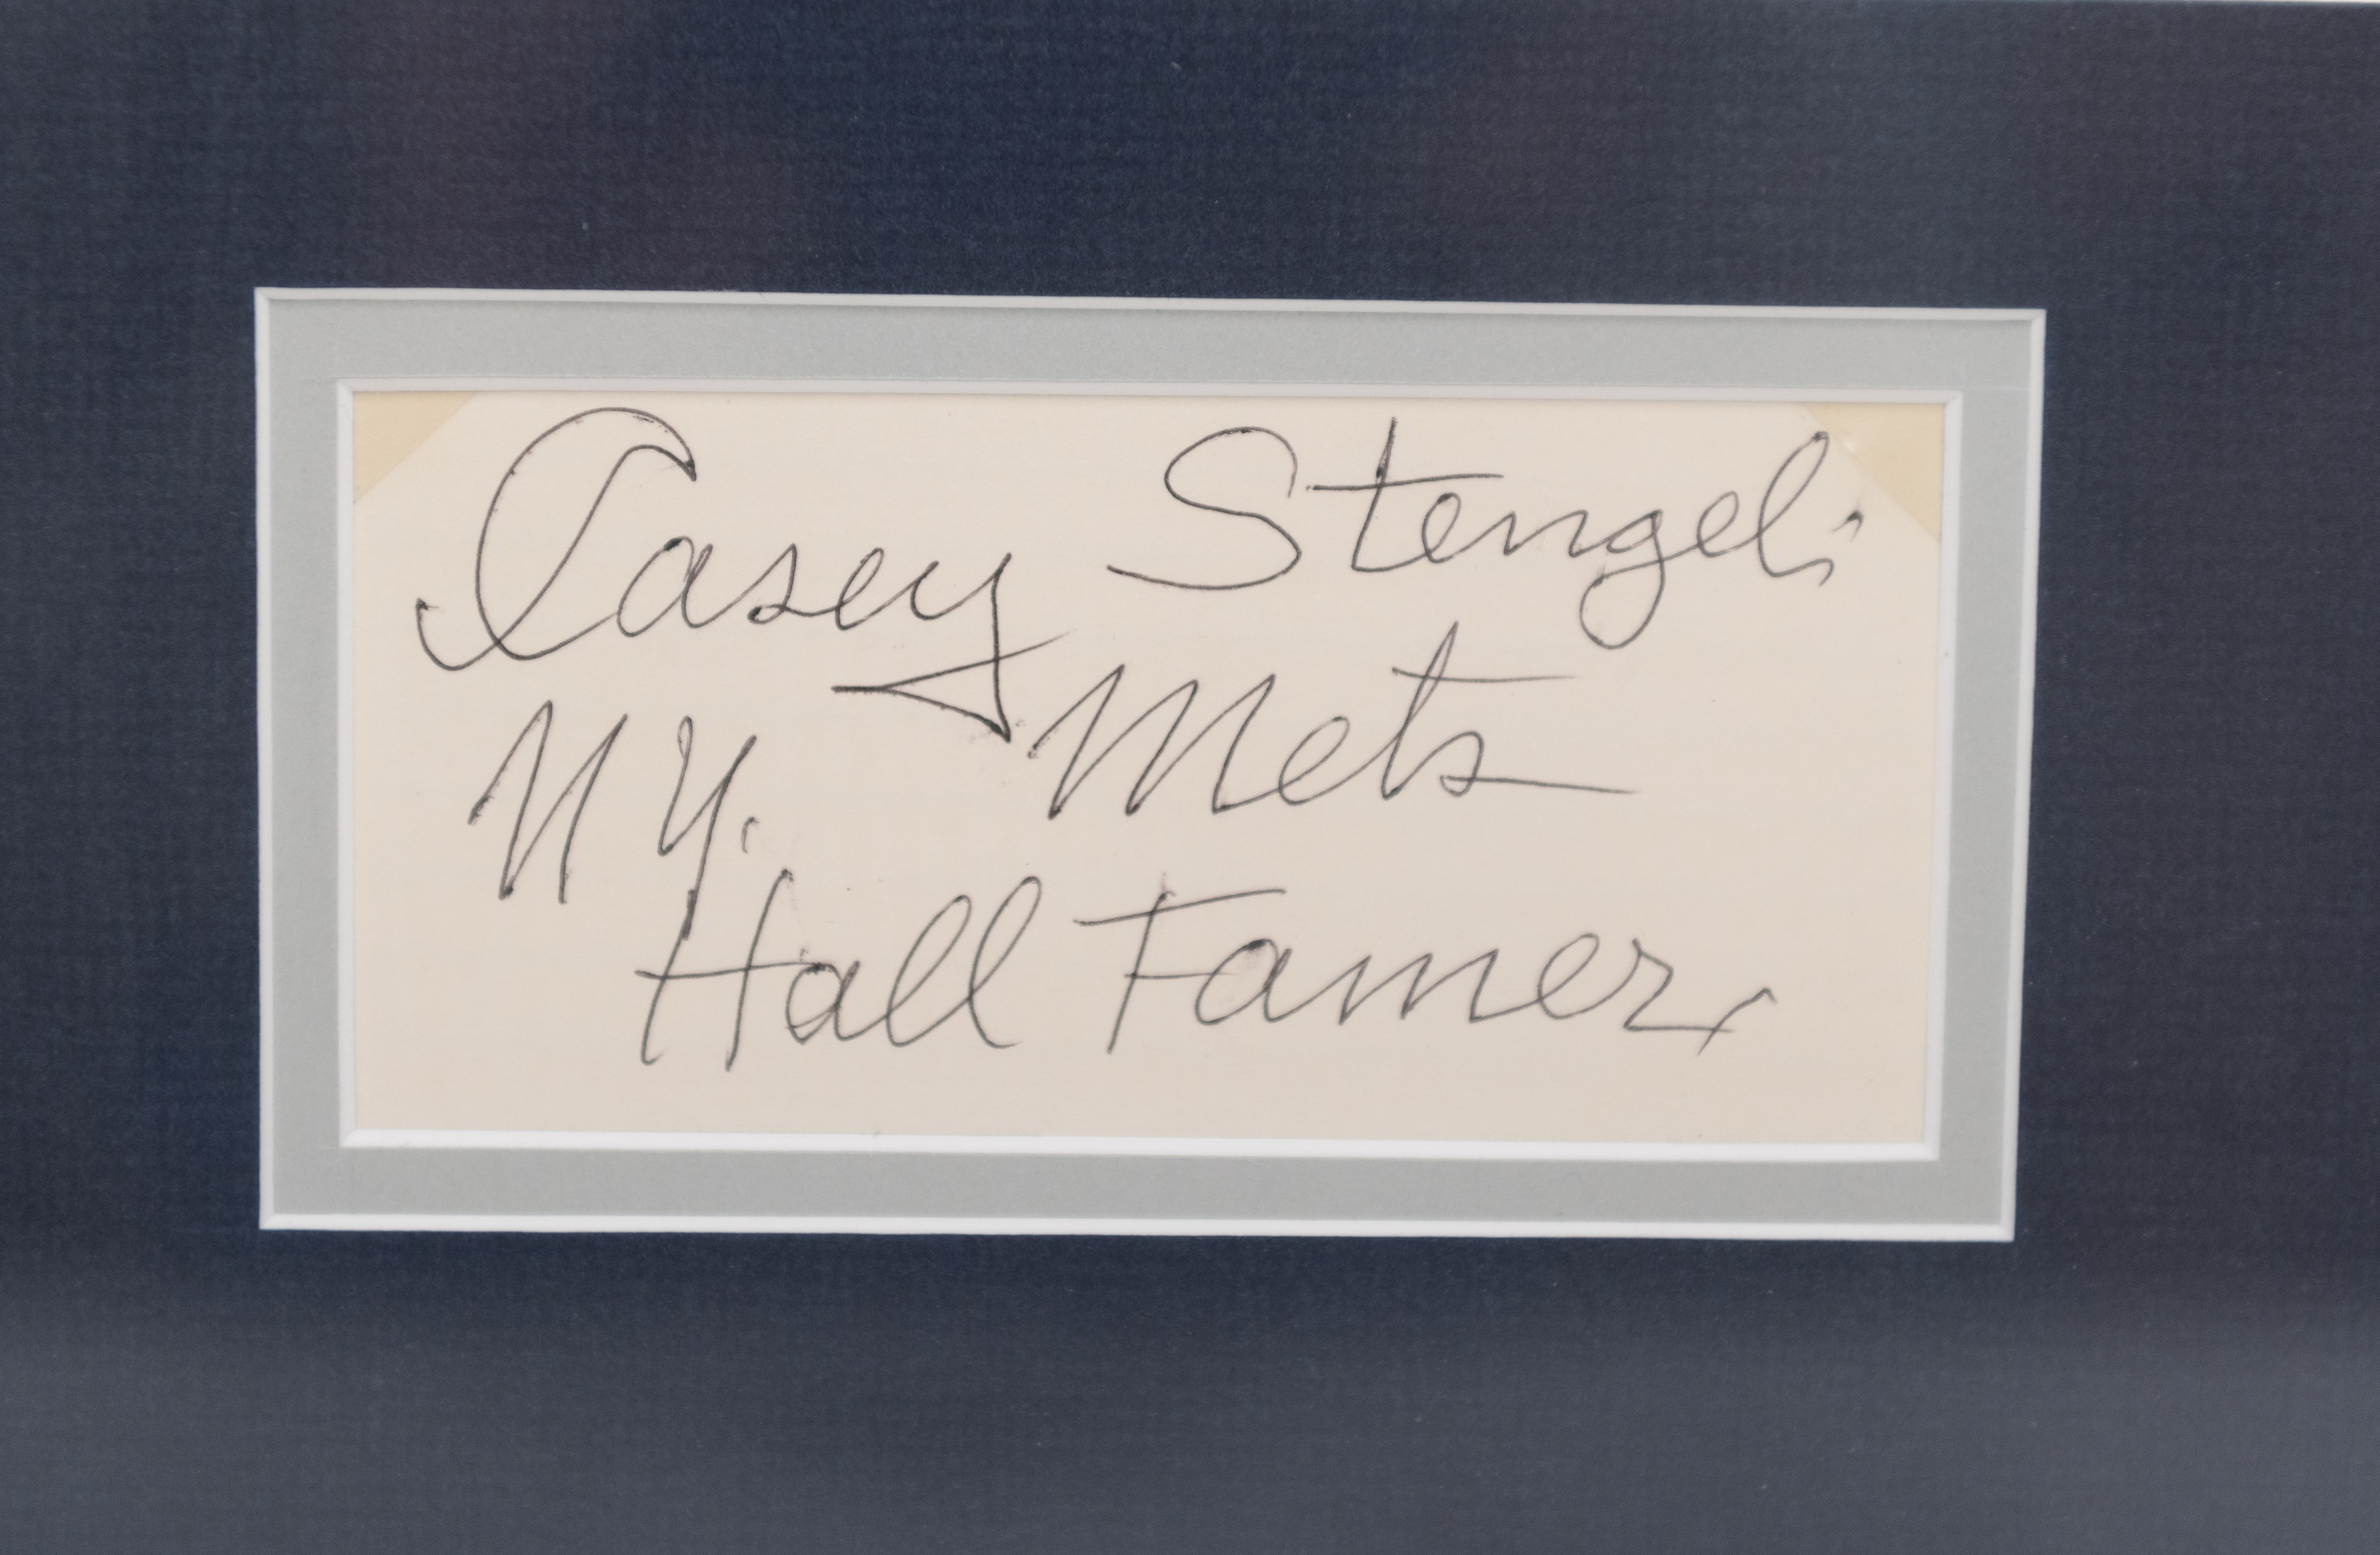 Casey Stengel.
N.Y. Mets
Hall Famer